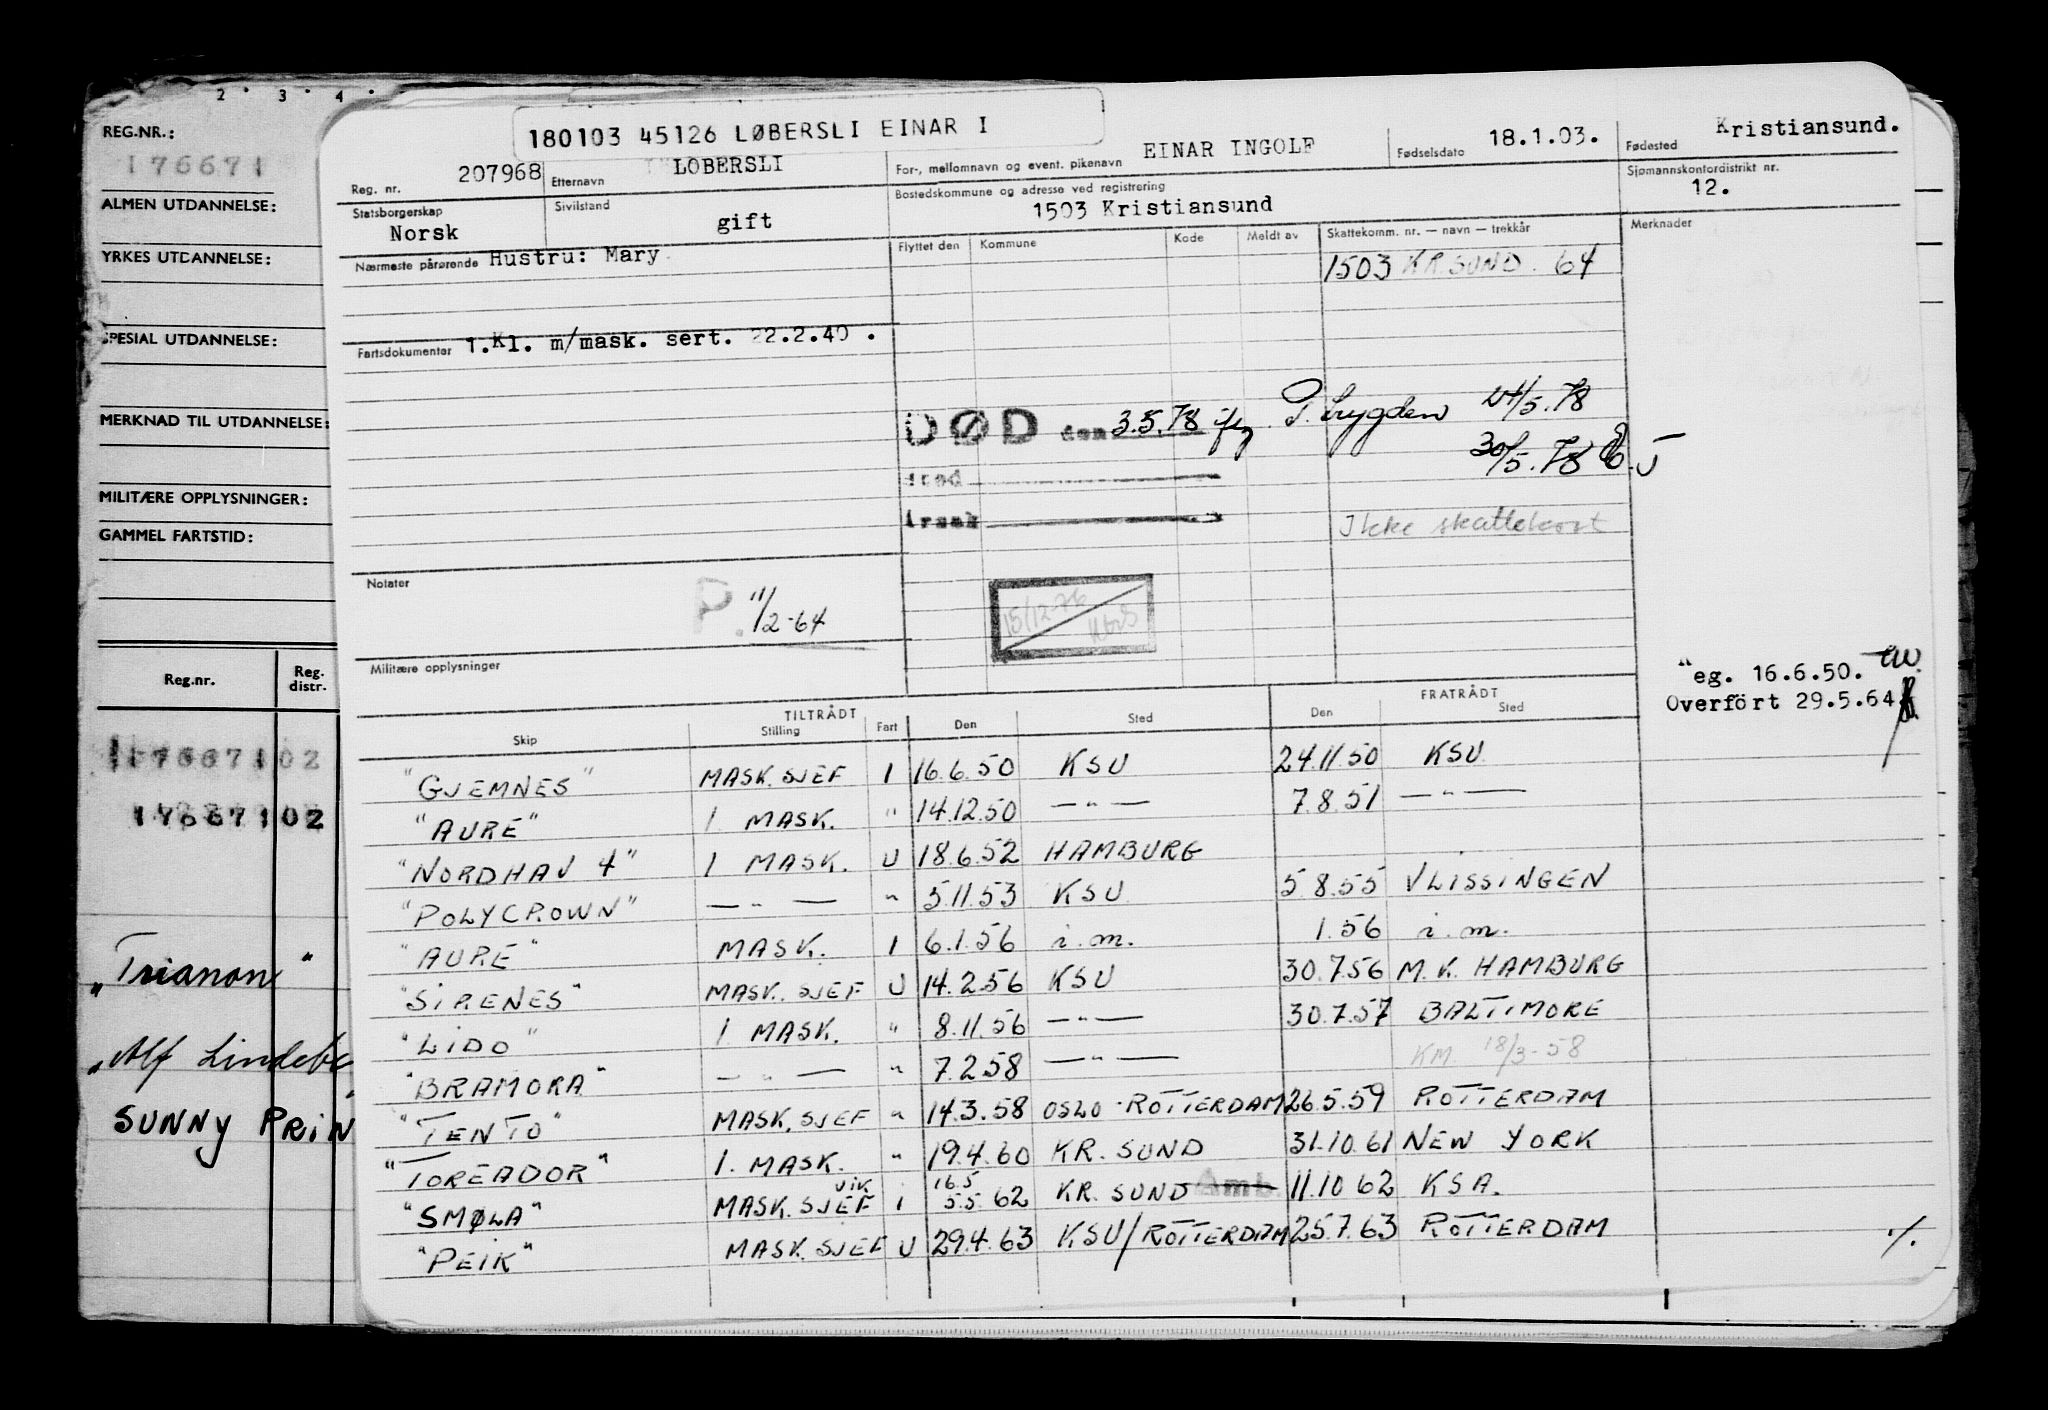 2 · 3 · 4 ·
REG.NR.:
176671
ALMEN UTDANNELSE:
YRKES UTDANNELSE:
SPESIAL UTDANNELSE:
MERKNAD TIL UTDANNELSE:
MILITÆRE OPPLYSNINGER:
GAMMEL FARTSTID:
Reg.nr. Reg. distr.
176671 02
176671 02
"Trianon"
"Alf Lindebe
SUNNY PRIN
180103 45126 LØBERSLI EINAR I
Reg. nr. 207968 Etternavn LØBERSLI For-, mellomnavn og event. pikenavn EINAR INGOLF Fødselsdato 18.1.03. Fødested Kristiansund.
Statsborgerskap Norsk Sivilstand gift Bostedskommune og adresse ved registrering 1503 Kristiansund Sjømannskontordistrikt nr. 12.
Nærmeste pårørende Hustru: Mary Flyttet den Kommune Kode Meldt av Skattekomm. nr. — navn — trekkår Merknader
1503 KR.SUND. 64
Fartsdokumenter 1.Kl. m/mask. sert. 22.2.40.
DØD den 3.5.78 jfg. P. Trygden 24/5.78
30/5.78
sted
årsak
Ikke skattekort
Notater P. 11/2-64
15/12-76
Militære opplysninger
eg. 16.6.50.
Overfört 29.5.64
TILTRÅDT FRATRÅDT
Skip Stilling Fart Den Sted Den Sted
"GJEMNES" MASK.SJEF I 16.6.50 KSU 24.11.50 KSU
"AURE" 1 MASK. " 14.12.50 — " — 7.8.51 — " —
"NORDHAV 4" 1 MASK. U 18.6.52 HAMBURG
"POLYCROWN" — " — " 5.11.53 KSU 5.8.55 VLISSINGEN
"AURE" MASK. I 6.1.56 i.m. 1.56 i.m.
"SIRENES" MASK.SJEF U 14.2.56 KSU 30.7.56 M.K. HAMBURG
"LIDO" 1 MASK. " 8.11.56 — " — 30.7.57 BALTIMORE
"BRAMORA" — " — " 7.2.58 — " — KM. 18/3-58
"TENTO" MASK.SJEF " 14.3.58 OSLO-ROTTERDAM 26.5.59 ROTTERDAM
"TOREADOR" 1. MASK. " 19.4.60 KR.SUND 31.10.61 NEW YORK
"SMØLA" MASK.SJEF VIK I 16.5 5.5.62 KR.SUND Amb. 11.10.62 KSA.
"PEIK" MASK.SJEF U 29.4.63 KSU/ROTTERDAM 25.7.63 ROTTERDAM
·/.